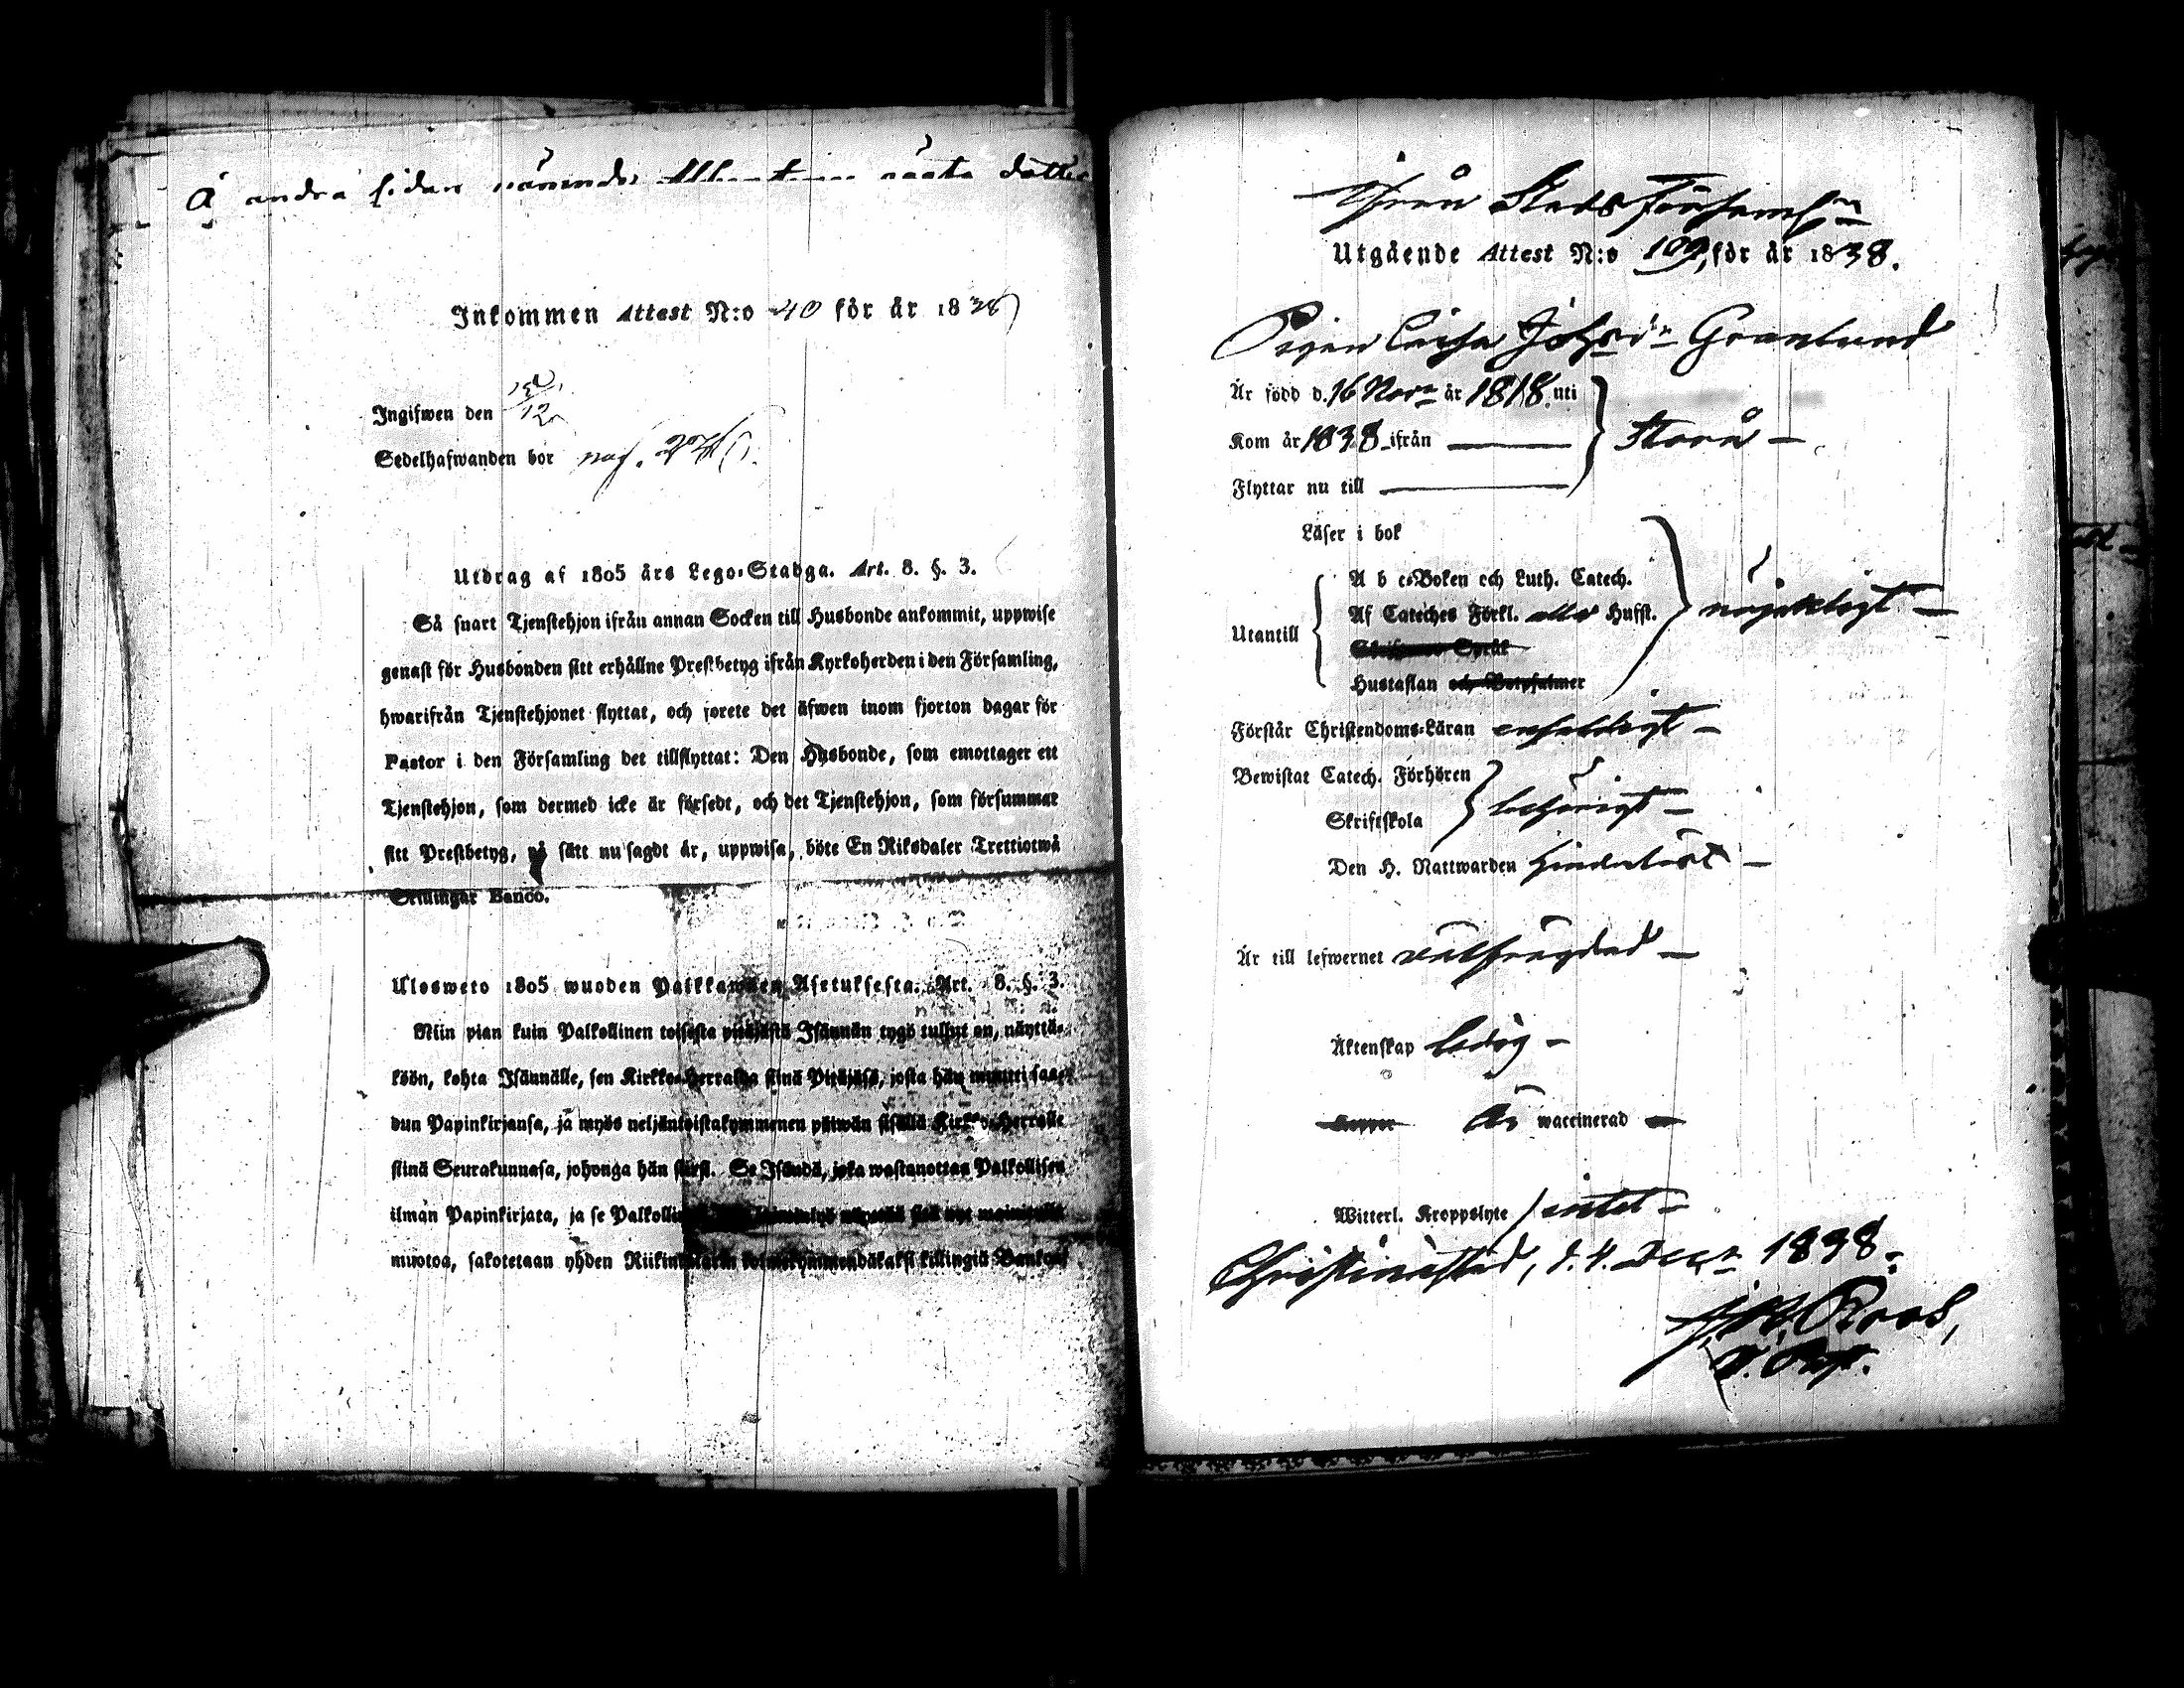 Å andra sidan nämnde
Inkommen Attest N:o 40 för år 1838
Ingifwen den 15/12
Sedelhafwanden bor
Utdrag af 1805 års Lego-Stadga. Art. 8. §. 3.
Så snart Tjenstehjon ifrån annan Socken till Husbonde ankommit, uppwise
genast för Husbonden sitt erhållne Prestbetyg ifrån Kyrkoherden i den Församling,
hwarifrån Tjenstehjonet flyttat, och forete det äfwen inom fjorton dagar för
Pastor i den Församling det tillflyttat: Den Husbonde, som emottager ett
Tjenstehjon, som dermed icke är försedt, och det Tjenstehjon, som försummar
sitt Prestbetyg, på sätt nu sagdt är, uppwisa, böte En Riksdaler Trettiotwå
Schillingar Banco.
Ulosweto 1805 wuoden Palkkawäen Asetuksesta. Art. 8. §. 3.
Niin pian kuin Palkollinen toisesta pitäjästä Isännän tygö tullut on, näyttä-
köön, kohta Isännälle, sen Kirkko-Herralda siinä Pitäjäsä, josta hän muutti saa-
dun Papinkirjansa, ja myös neljäntoistakymmenen päiwän sisällä Kirkko-Herralle
siinä Seurakunnasa, johonga hän siirsi. Se Isändä, joka wastanottaa Palkollisen
ilman Papinkirjata, ja se
muotoa, sakotetaan yhden kolmekymmendäkaksi killingiä Bankosa
Ifrån Stads Församln
Utgående Attest N:o 109, för år 1838.
Pigan Caisa Johsdr Granlund
Är född d. 16 Novr år 1818 uti
Kom år 1838 ifrån
Storå
Flyttar nu till
Läser i bok
A b c-Boken och Luth. Catech.
Af Cateches Förkl. Husst.
nöjaktigt
Utantill
Språk
Hustaflan och Botpsalmer
Förstår Christendoms-Läran enfaldigt
Bewistat Catech. Förhören
behörigt
Skriftskola
Den H. Nattwarden hinderlöst
Är till lefwernet välfrägdad
Äktenskap ledig
Är waccinerad
Witterl. Kroppslyte intet
Christinestad, d. 4. Decr 1838.
Roos,